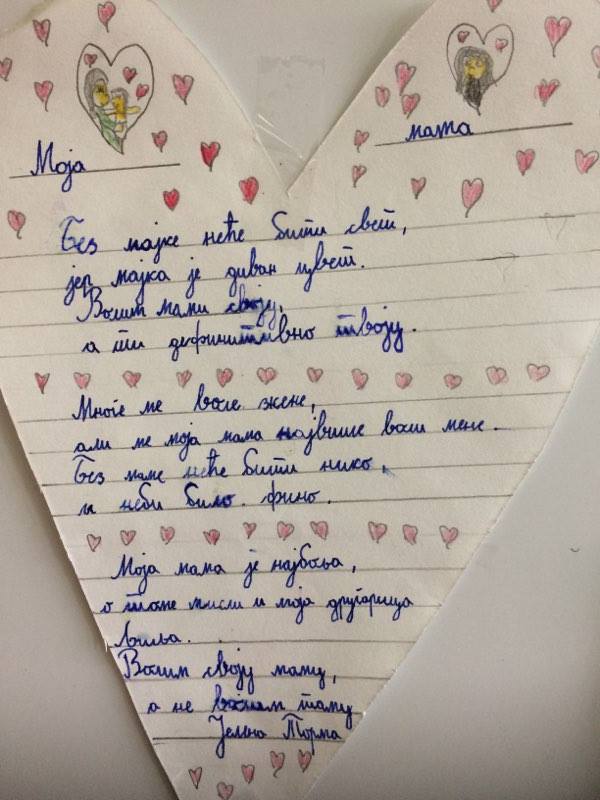 Моја мама
Без мајке неће бити свет,
јер мајка је диван цвет.
Волим мами своју,
а ти дефинитивно твоју.
Многе ме воле жене,
али ме моја мама највише воли мене.
Без маме неће бити нико,
и неби било фино.
Моја мама је најбоља,
о томе мисли и моја другарица
Биља.
Волим своју маму,
а не волим таму
Јелена